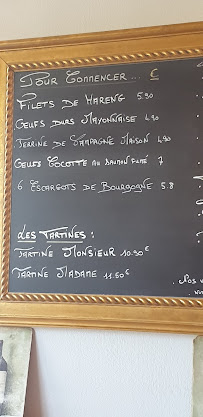 Pour Commencer ... €
Filets de Hareng 5.90
Oeufs durs Mayonnaise 4.90
Terrine de Campagne Maison 4.90
Oeufs Cocotte au Saumon Fumé 7
6 Escargots de Bourgogne 5.8
Les Tartines :
Tartine Monsieur 10.50€
Tartine Madame 11.50€
. Nos